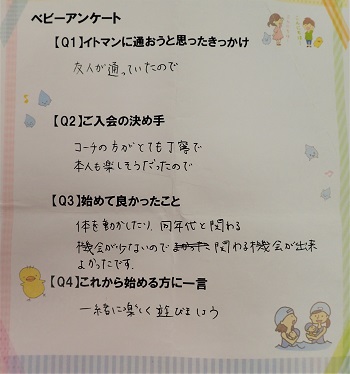 ベビーアンケート
【Q1】イトマンに通おうと思ったきっかけ
友人が通っていたので
【Q2】ご入会の決め手
コーチの方がとても丁寧で
本人も楽しそうだったので
【Q3】始めて良かったこと
体を動かしたり、同年代と関わる
機会が少ないので 関わる機会が出来
よかったです。
【Q4】これから始める方に一言
一緒に楽しく遊びましょう